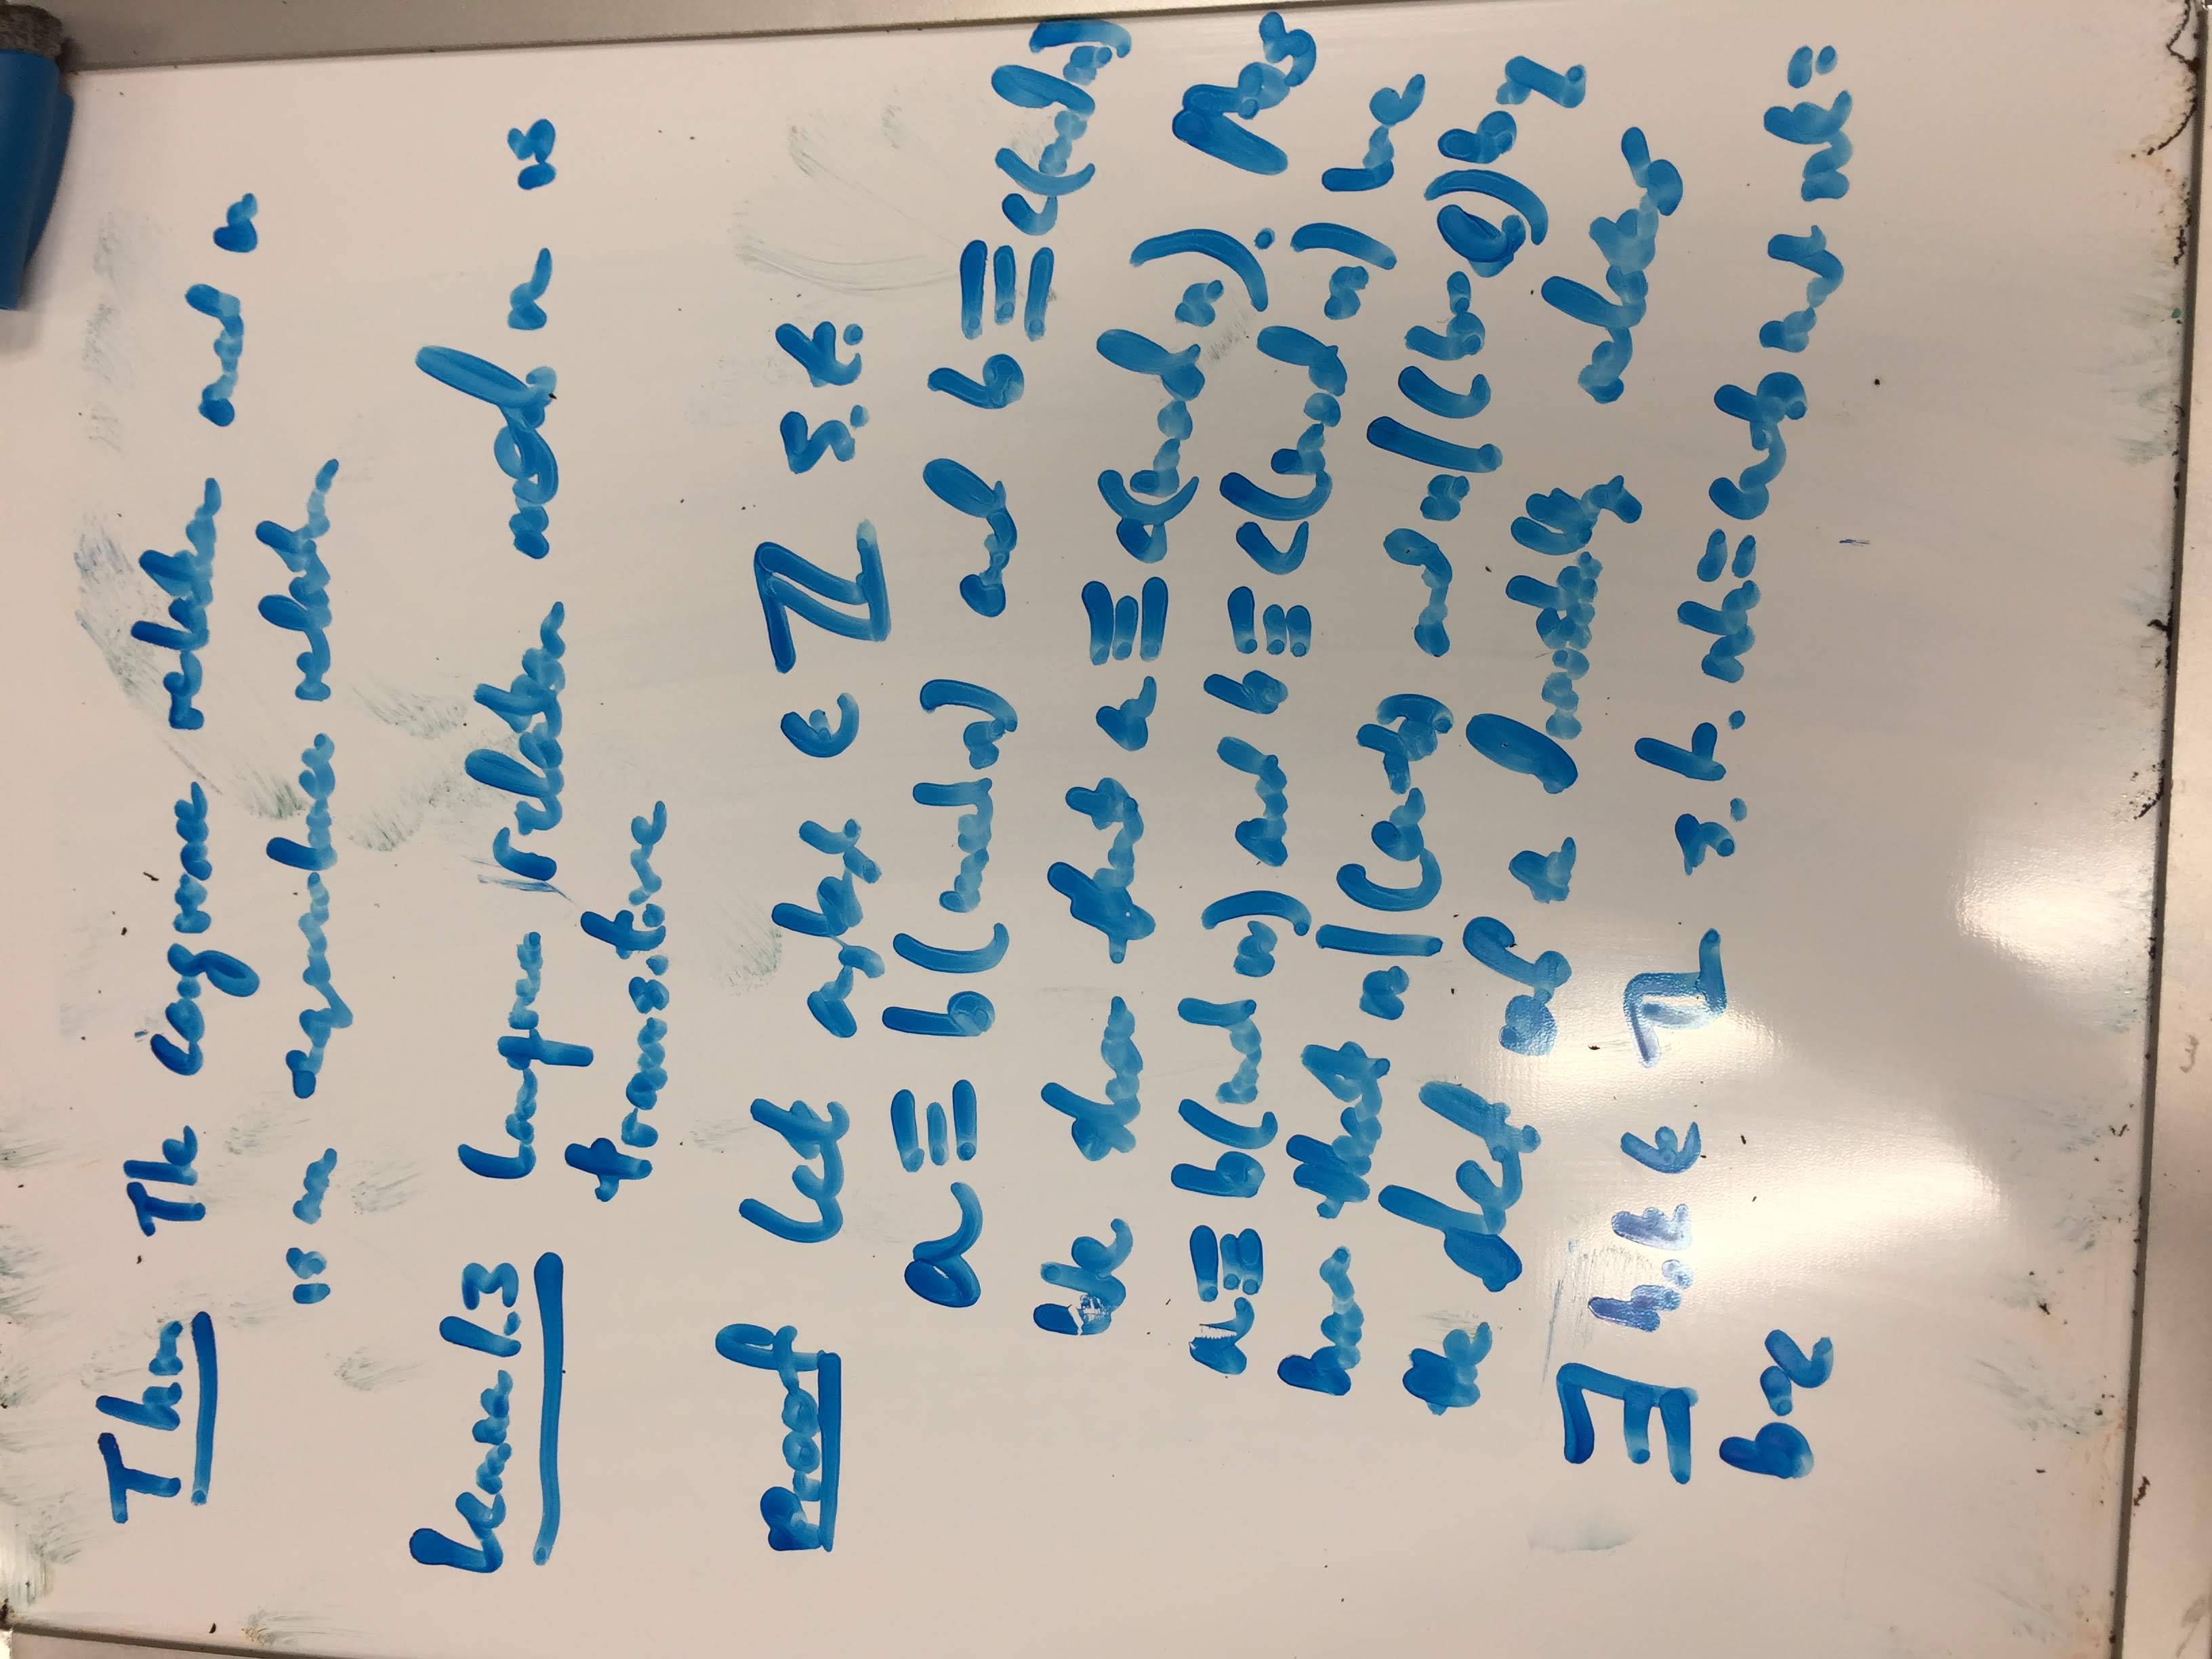 Thm The congruence relation mod n
is an equivalence relation
Lemma 1.3 Congruence relation mod n is
transitive
Proof Let a,b,c ∈ ℤ s.t.
a ≡ b (mod n) and b ≡ c (mod n)
We show that a ≡ c (mod n). As
a ≡ b (mod n) and b ≡ c (mod n) we
have that n|(a-b) and n|(b-c) by
the def of the divisibility relation
∃ h, k ∈ ℤ s.t. nh = a-b and nk =
b-c